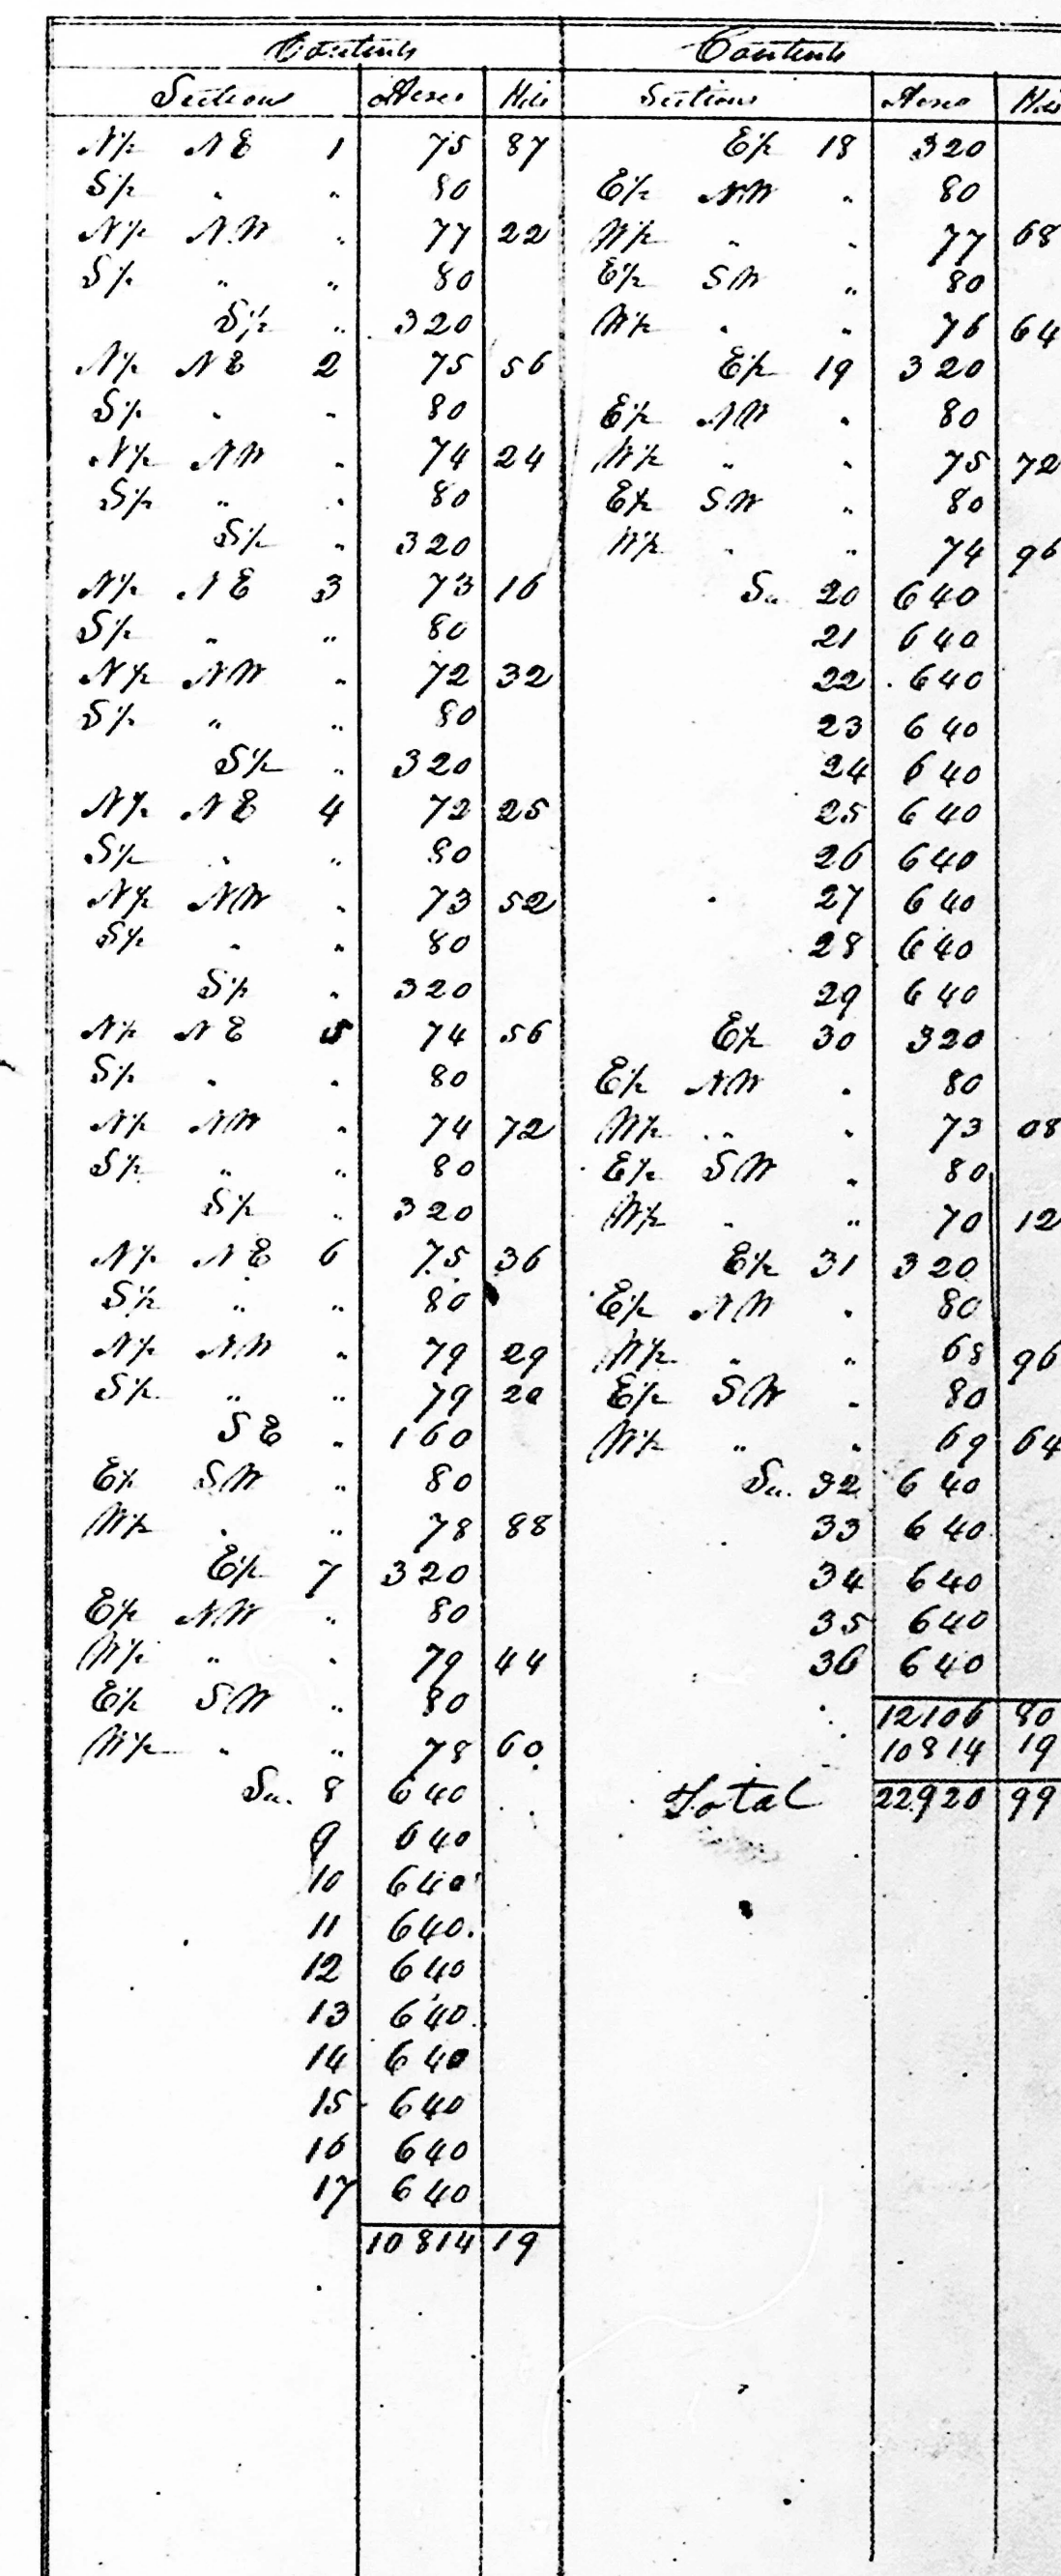 Contents
Sections Acres Hds
N½ NE 1 75 87
S½ " " 80
N½ NW " 77 22
S½ " " 80
S½ " 320
N½ NE 2 75 56
S½ " " 80
N½ NW " 74 24
S½ " " 80
S½ " 320
N½ NE 3 73 16
S½ " " 80
N½ NW " 72 32
S½ " " 80
S½ " 320
N½ NE 4 72 25
S½ " " 80
N½ NW " 73 52
S½ " " 80
S½ " 320
N½ NE 5 74 56
S½ " " 80
N½ NW " 74 72
S½ " " 80
S½ " 320
N½ NE 6 75 36
S½ " " 80
N½ NW " 79 29
S½ " " 79 20
SE " 160
E½ SW " 80
W½ " " 78 88
E½ 7 320
E½ NW " 80
W½ " " 79 44
E½ SW " 80
W½ " " 78 60
Sec. 8 640
9 640
10 640
11 640
12 640
13 640
14 640
15 640
16 640
17 640
10814 19
Contents
Sections Acres Hds
E½ 18 320
E½ NW " 80
W½ " " 77 68
E½ SW " 80
W½ " " 76 64
E½ 19 320
E½ NW " 80
W½ " " 75 72
E½ SW " 80
W½ " " 74 96
Sec. 20 640
21 640
22 640
23 640
24 640
25 640
26 640
27 640
28 640
29 640
E½ 30 320
E½ NW " 80
W½ " " 73 08
E½ SW " 80
W½ " " 70 12
E½ 31 320
E½ NW " 80
W½ " " 68 96
E½ SW " 80
W½ " " 69 64
Sec. 32 640
33 640
34 640
35 640
36 640
12106 80
10814 19
Total 22920 99